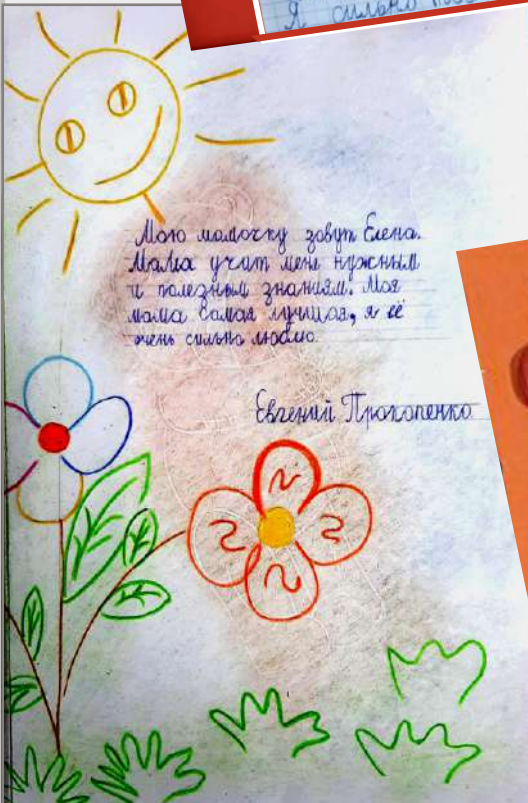 Я сильно
Мою мамочку зовут Елена.
Мама учит меня нужным
и полезным знаниям. Моя
мама самая лучшая, я её
очень сильно люблю.
Евгений Прокопенко